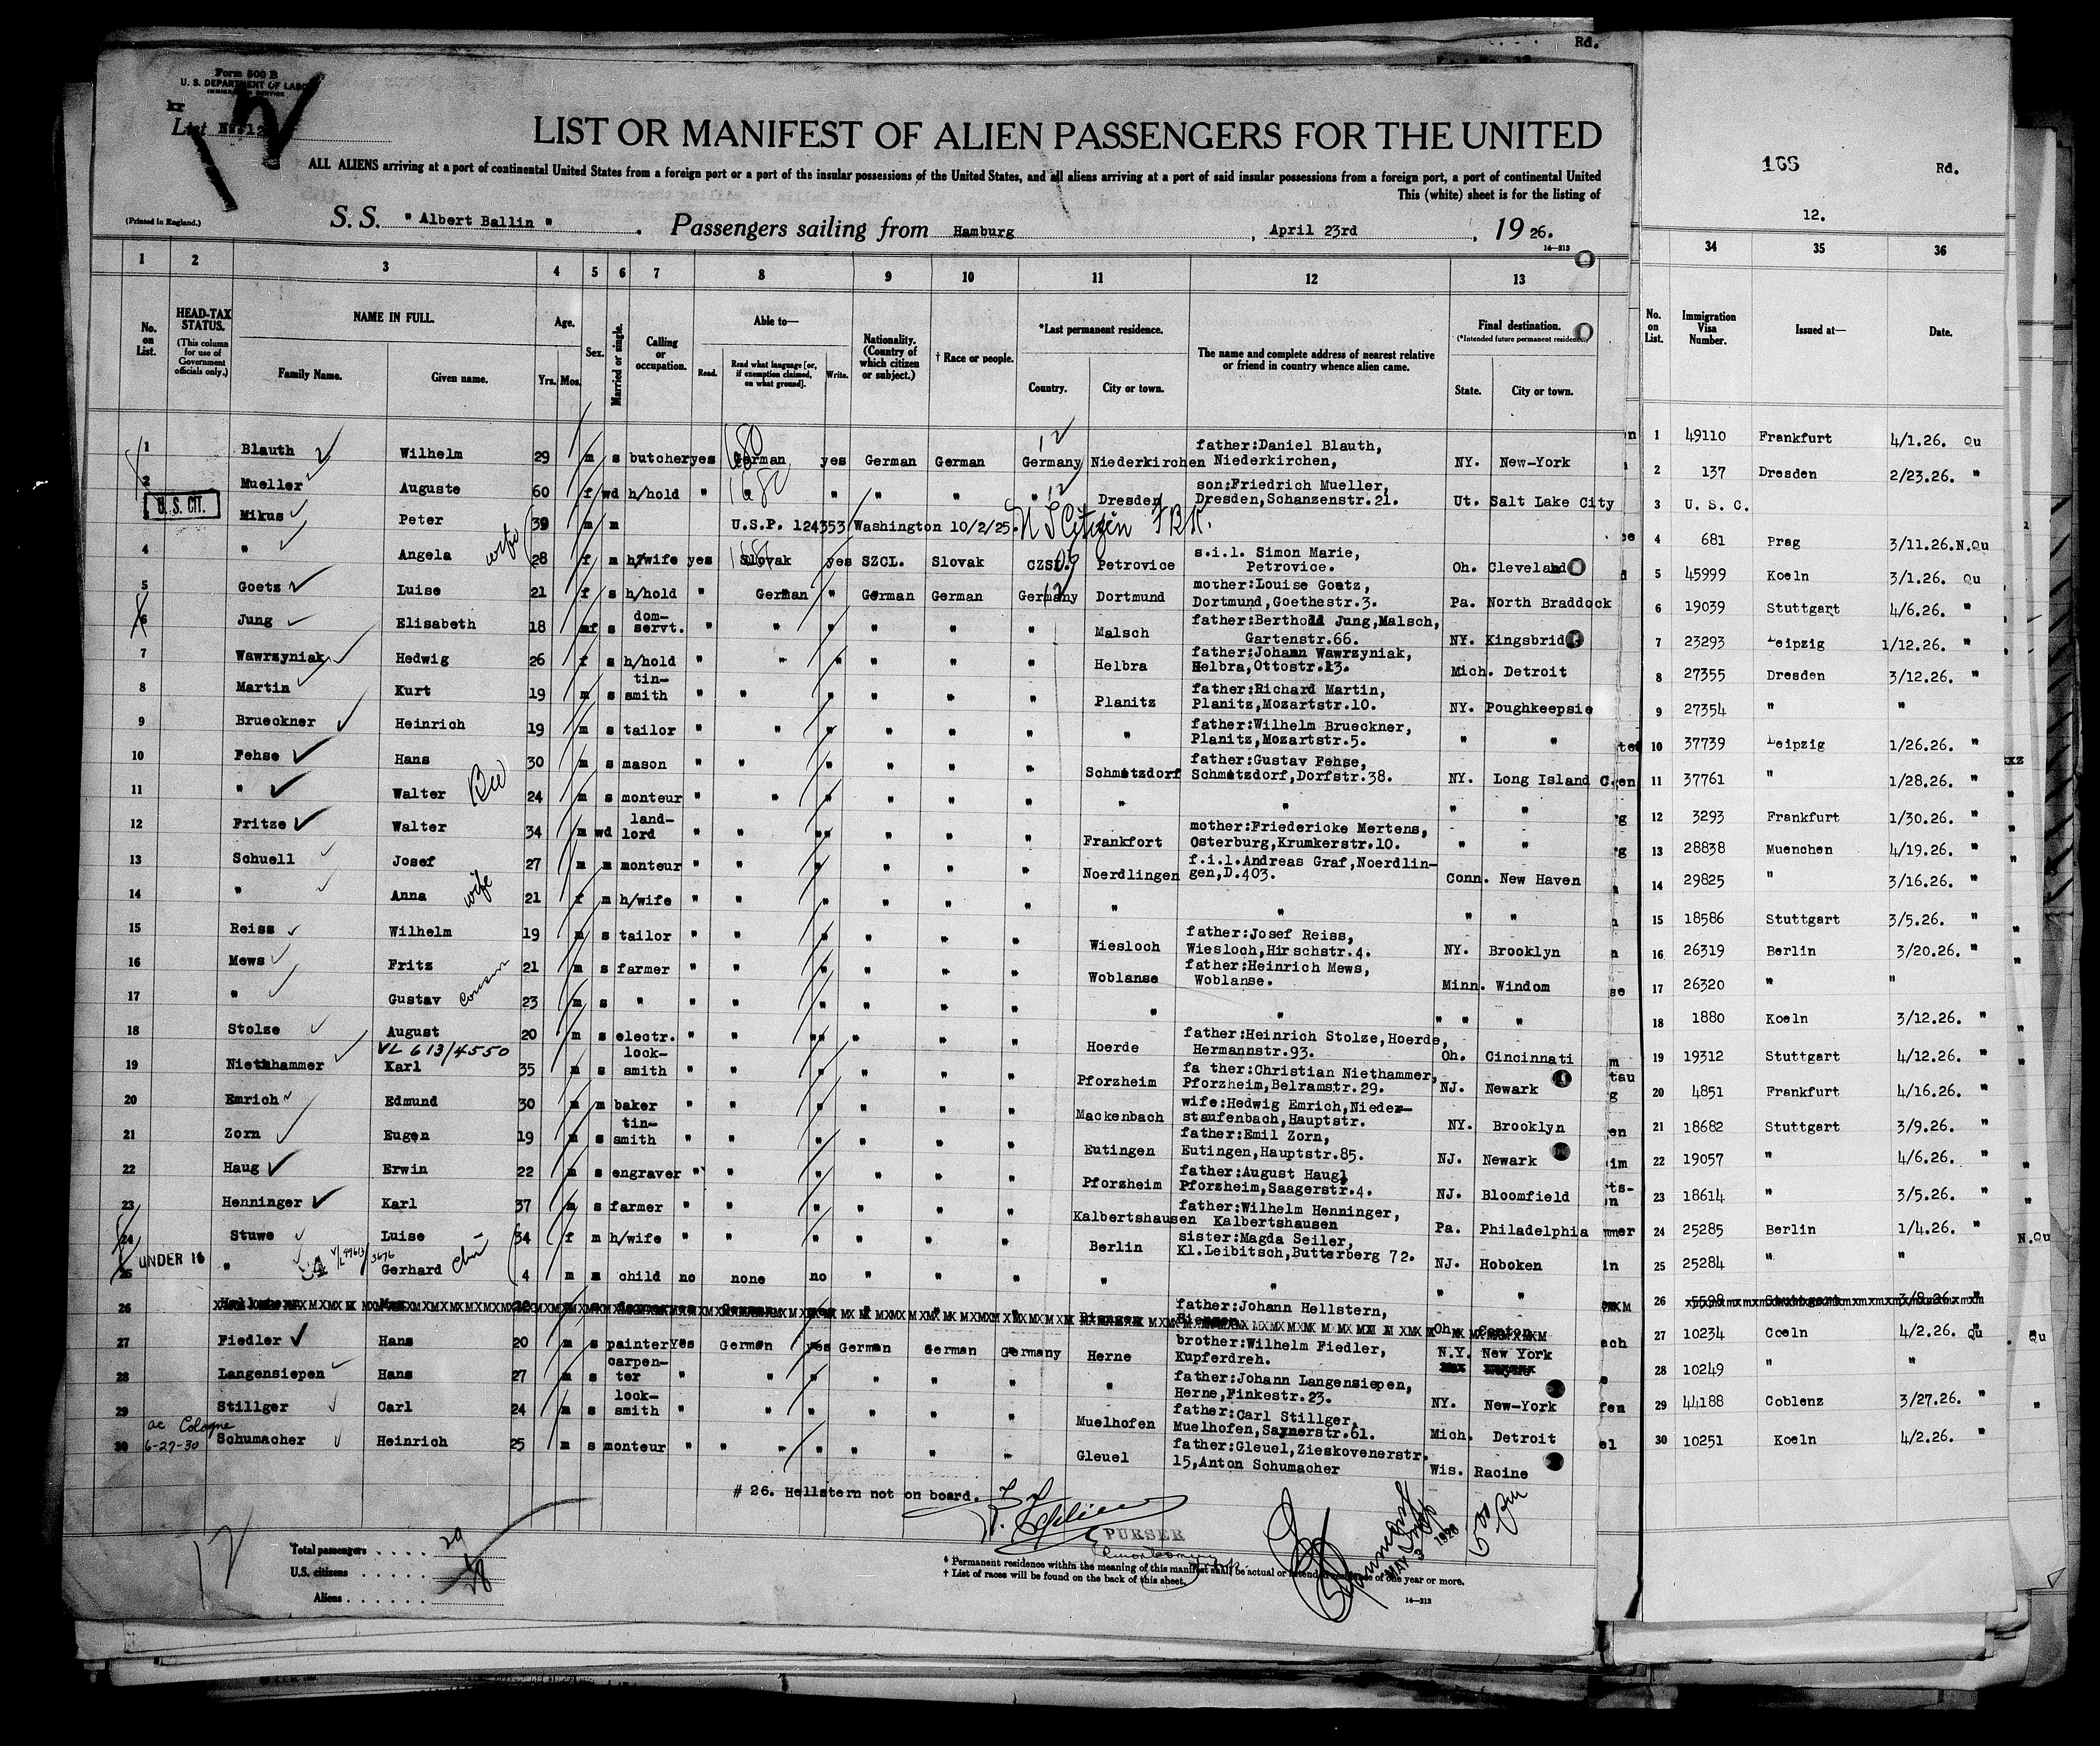 Rd.
Form 500 B
U. S. DEPARTMENT OF LABOR
IMMIGRATION SERVICE
kr
List No. 12
LIST OR MANIFEST OF ALIEN PASSENGERS FOR THE UNITED
ALL ALIENS arriving at a port of continental United States from a foreign port or a port of the insular possessions of the United States, and all aliens arriving at a port of said insular possessions from a foreign port, a port of continental United
This (white) sheet is for the listing of
(Printed in England.)
S. S. " Albert Ballin " . Passengers sailing from Hamburg , April 23rd , 19 26.
14—213
1 2 3 4 5 6 7 8 9 10 11 12 13
No. on List.
HEAD-TAX STATUS.
(This column for use of Government officials only.)
NAME IN FULL.
Family Name. Given name.
Age.
Yrs. Mos.
Sex.
Married or single.
Calling or occupation.
Able to—
Read. Read what language [or, if exemption claimed, on what ground]. Write.
Nationality. (Country of which citizen or subject.)
† Race or people.
*Last permanent residence.
Country. City or town.
The name and complete address of nearest relative or friend in country whence alien came.
Final destination.
(*Intended future permanent residence.)
State. City or town.
1 Blauth Wilhelm 29 m s butcher yes German yes German German Germany Niederkirchen father:Daniel Blauth, Niederkirchen, NY. New-York
2 Mueller Auguste 60 f wd h/hold " " " " " Dresden son:Friedrich Mueller, Dresden,Schanzenstr.21. Ut. Salt Lake City
U. S. CIT.
3 Mikus Peter 39 m m U.S.P. 124353 Washington 10/2/25. U S Citizen
4 " Angela wife 28 f m h/wife yes Slovak yes SZCL. Slovak CZSL. Petrovice s.i.l. Simon Marie, Petrovice. Oh. Cleveland
5 Goetz Luise 21 f s h/hold " German " German German Germany Dortmund mother:Louise Goetz, Dortmund,Goethestr.3. Pa. North Braddock
6 Jung Elisabeth 18 mf s dom-servt. " " " " " " Malsch father:Berthold Jung,Malsch, Gartenstr.66. NY. Kingsbridge
7 Wawrzyniak Hedwig 26 f s h/hold " " " " " " Helbra father:Johann Wawrzyniak, Helbra,Ottostr.13. Mich. Detroit
8 Martin Kurt 19 m s tin-smith " " " " " " Planitz father:Richard Martin, Planitz,Mozartstr.10. NY. Poughkeepsie
9 Brueckner Heinrich 19 m s tailor " " " " " " " father:Wilhelm Brueckner, Planitz,Mozartstr.5. " "
10 Fehse Hans 30 m s mason " " " " " " Schmetzdorf father:Gustav Fehse, Schmetzdorf,Dorfstr.38. NY. Long Island C.
11 " Walter 24 m s monteur " " " " " " " " " "
12 Fritze Walter 34 m wd land-lord " " " " " " Frankfort mother:Friedericke Mertens, Osterburg,Krumkerstr.10. " "
13 Schuell Josef 27 m m monteur " " " " " " Noerdlingen f.i.l.Andreas Graf,Noerdlin-gen,D.403. Conn. New Haven
14 " Anna wife 21 f m h/wife " " " " " " " " " "
15 Reiss Wilhelm 19 m s tailor " " " " " " Wiesloch father:Josef Reiss, Wiesloch,Hirschstr.4. NY. Brooklyn
16 Mews Fritz 21 m s farmer " " " " " " Woblanse father:Heinrich Mews, Woblanse. Minn. Windom
17 " Gustav cousin 23 m s " " " " " " " " " " "
18 Stolze August 20 m s electr. " " " " " " Hoerde father:Heinrich Stolze,Hoerde, Hermannstr.93. Oh. Cincinnati
VL 613/4550
19 Niethhammer Karl 35 m s lock-smith " " " " " " Pforzheim fa ther:Christian Niethammer, Pforzheim,Belramstr.29. NJ. Newark
20 Emrich Edmund 30 m m baker " " " " " " Mackenbach wife:Hedwig Emrich,Nieder-staufenbach,Hauptstr. NY. Brooklyn
21 Zorn Eugen 19 m s tin-smith " " " " " " Eutingen father:Emil Zorn, Eutingen,Hauptstr.85. NJ. Newark
22 Haug Erwin 22 m s engraver " " " " " " Pforzheim father:August Haug, Pforzheim,Saagerstr.4. NJ. Bloomfield
23 Henninger Karl 37 m s farmer " " " " " " Kalbertshausen father:Wilhelm Henninger, Kalbertshausen Pa. Philadelphia
24 Stuwe Luise 34 f m h/wife " " " " " " Berlin sister:Magda Seiler, Kl.Leibitsch,Butterberg 72. NJ. Hoboken
UNDER 16
25 " Gerhard 4 m s child no none no " " " " " " "
26 father:Johann Hellstern, Oh. Canton
27 Fiedler Hans 20 m s painter yes German yes German German Germany Herne brother:Wilhelm Fiedler, Kupferdreh. N.Y. New York
28 Langensiepen Hans 27 m s carpen-ter " " " " " " " father:Johann Langensiepen, Herne,Finkestr.23. NY. New-York
29 Stillger Carl 24 m s lock-smith " " " " " " Muelhofen father:Carl Stillger, Muelhofen,Saynerstr.61. Mich. Detroit
ac Cologne
6-27-30
30 Schumacher Heinrich 25 m s monteur " " " " " " Gleuel father:Gleuel,Zieskovenerstr. 15,Anton Schumacher Wis. Racine
# 26. Hellstern not on board.
PURSER
MAY 3 1926
Total passengers . . . . 29
U.S. citizens . . . . . 1
Aliens . . . . . . 28
* Permanent residence within the meaning of this manifest shall be actual or intended residence of one year or more.
† List of races will be found on the back of this sheet.
14—213
166 Rd.
12.
34 35 36
No. on List. Immigration Visa Number. Issued at— Date.
1 49110 Frankfurt 4/1.26. Qu
2 137 Dresden 2/23.26. "
3 U. S. C.
4 681 Prag 3/11.26.N.Qu
5 45999 Koeln 3/1.26. Qu
6 19039 Stuttgart 4/6.26. "
7 23293 Leipzig 1/12.26. "
8 27355 Dresden 3/12.26. "
9 27354 " "
10 37739 Leipzig 1/26.26. "
11 37761 " 1/28.26. "
12 3293 Frankfurt 1/30.26. "
13 28838 Muenchen 4/19.26. "
14 29825 " 3/16.26. "
15 18586 Stuttgart 3/5.26. "
16 26319 Berlin 3/20.26. "
17 26320 " "
18 1880 Koeln 3/12.26. "
19 19312 Stuttgart 4/12.26. "
20 4851 Frankfurt 4/16.26. "
21 18682 Stuttgart 3/9.26. "
22 19057 " 4/6.26. "
23 18614 " 3/5.26. "
24 25285 Berlin 1/4.26. "
N.Qu
25 25284 " "
26 5598 Stuttgart 3/8.26. "
27 10234 Coeln 4/2.26. Qu
28 10249 " "
29 44188 Coblenz 3/27.26. "
30 10251 Koeln 4/2.26. "